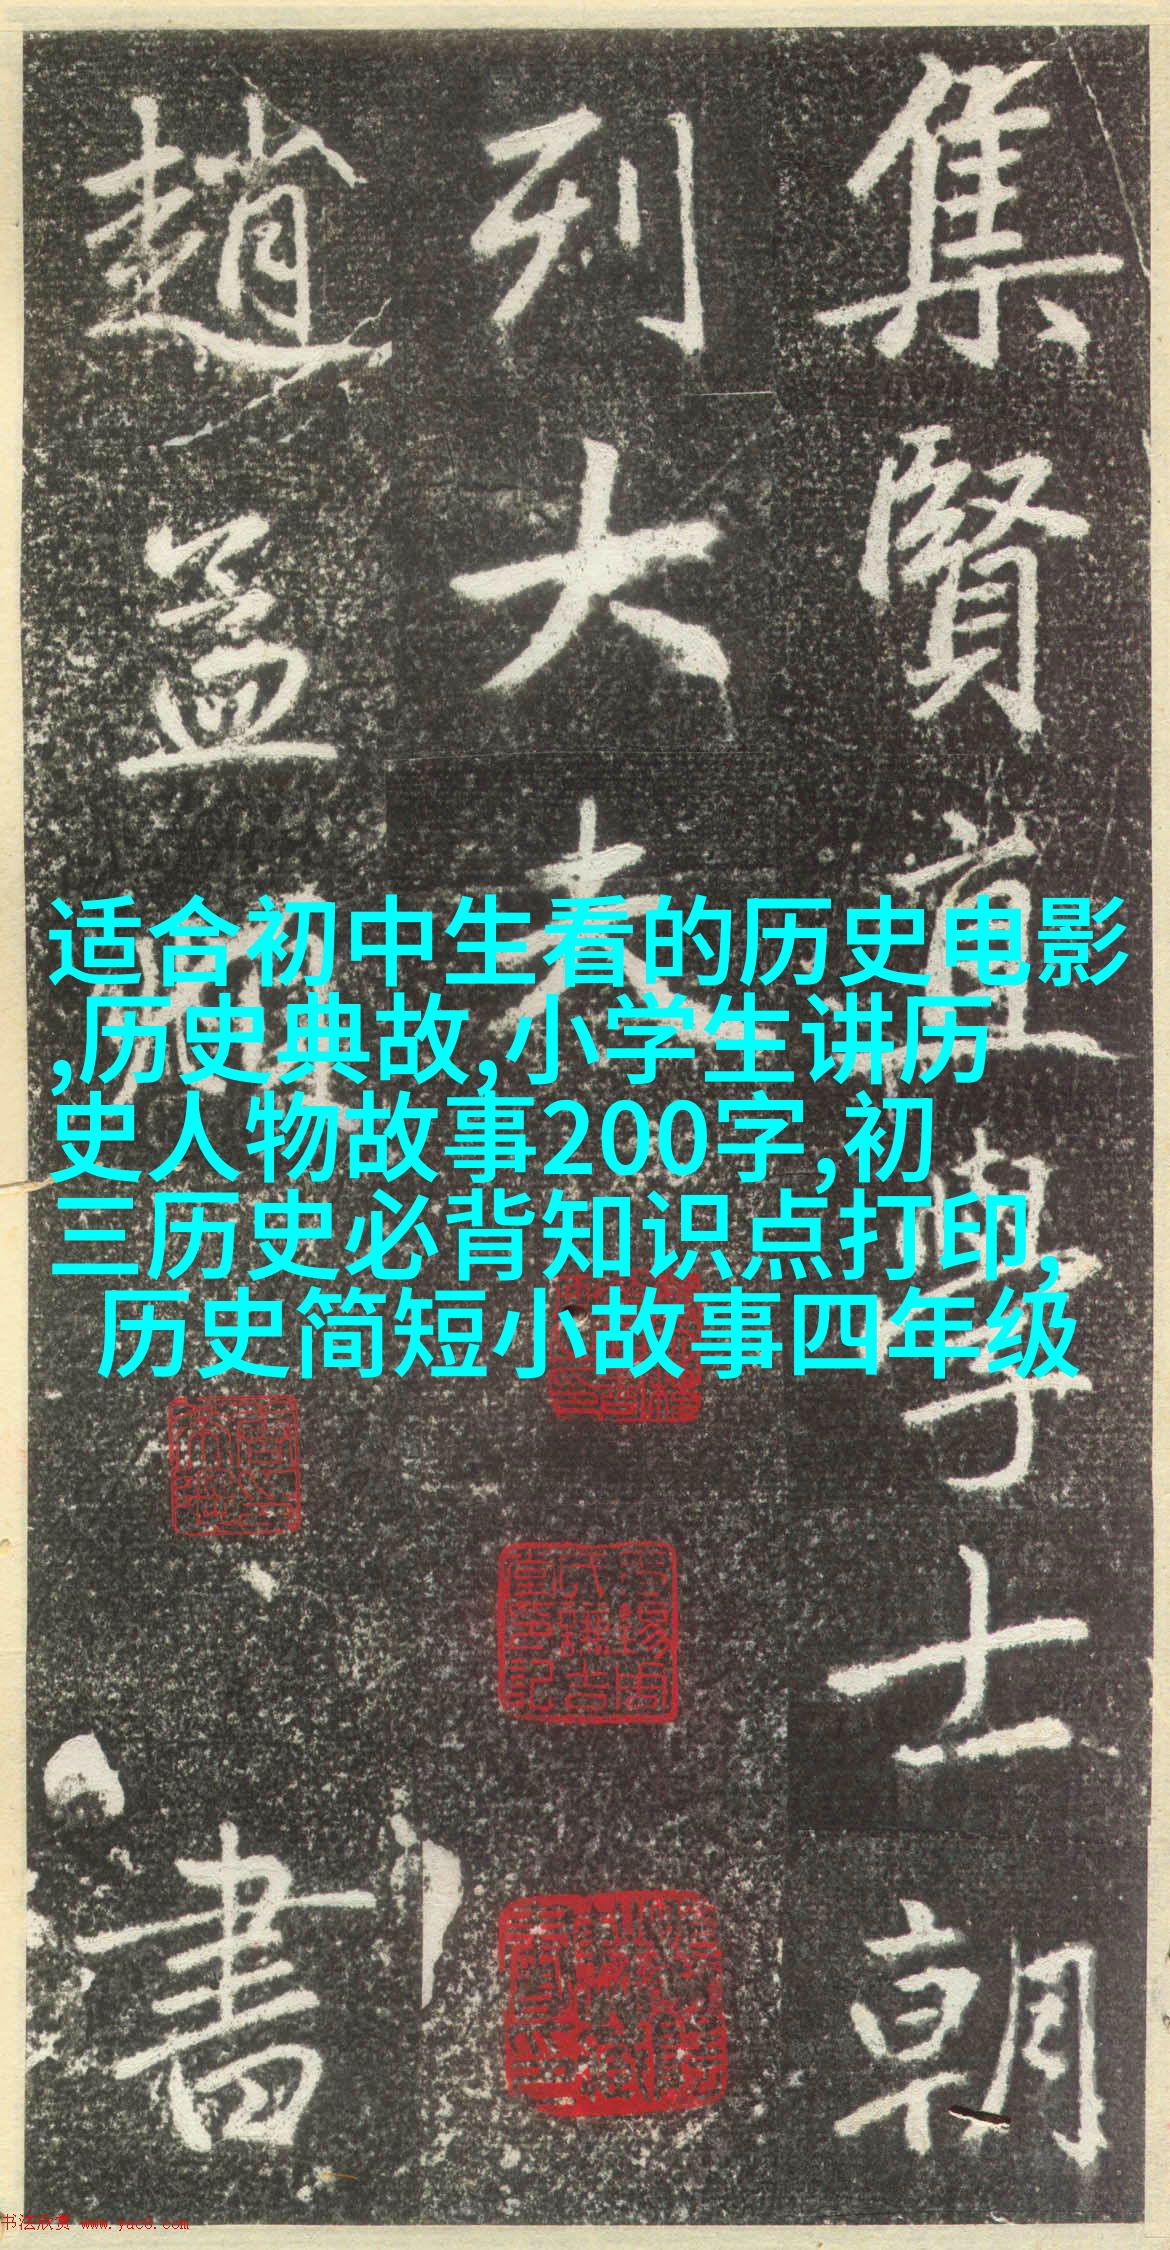 集賢直學士朝
列大夫
趙孟
書
适合初中生看的历史电影
,历史典故,小学生讲历
史人物故事200字,初
三历史必背知识点打印,
历史简短小故事四年级
书法欣赏 www.yac8.com